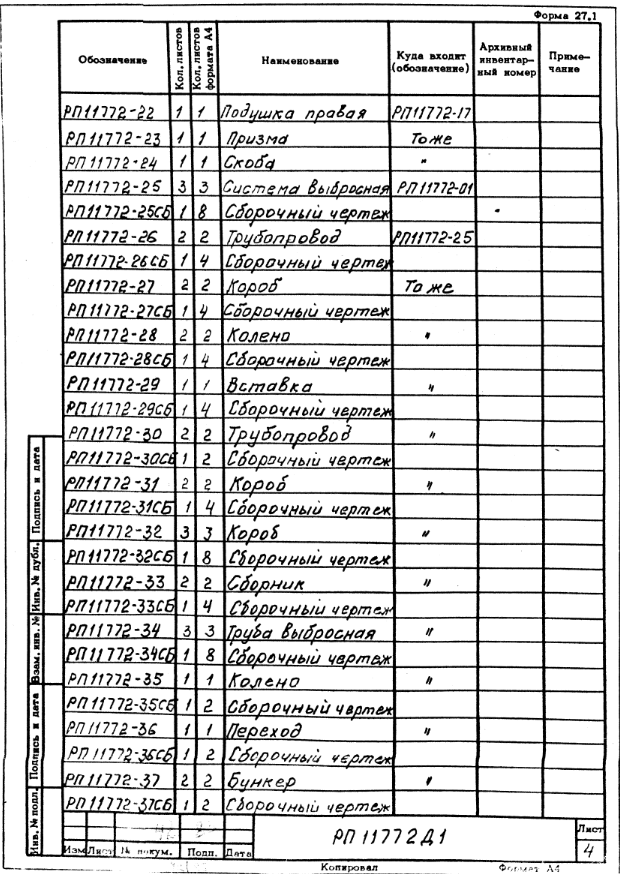 Форма 27.1
Обозначение Кол. листов Кол. листов формата А4 Наименование Куда входит (обозначение) Архивный инвентарный номер Примечание
РП11772-22 1 1 Подушка правая РП11772-17
РП11772-23 1 1 Призма То же
РП11772-24 1 1 Скоба "
РП11772-25 3 3 Система выбросная РП11772-01
РП11772-25СБ 1 8 Сборочный чертеж
РП11772-26 2 2 Трубопровод РП11772-25
РП11772-26СБ 1 4 Сборочный чертеж
РП11772-27 2 2 Короб То же
РП11772-27СБ 1 4 Сборочный чертеж
РП11772-28 2 2 Колено "
РП11772-28СБ 1 4 Сборочный чертеж
РП11772-29 1 1 Вставка "
РП11772-29СБ 1 4 Сборочный чертеж
РП11772-30 2 2 Трубопровод "
РП11772-30СБ 1 2 Сборочный чертеж
РП11772-31 2 2 Короб "
РП11772-31СБ 1 4 Сборочный чертеж
РП11772-32 3 3 Короб "
РП11772-32СБ 1 8 Сборочный чертеж
РП11772-33 2 2 Сборник "
РП11772-33СБ 1 4 Сборочный чертеж
РП11772-34 3 3 Труба выбросная "
РП11772-34СБ 1 8 Сборочный чертеж
РП11772-35 1 1 Колено "
РП11772-35СБ 1 2 Сборочный чертеж
РП11772-36 1 1 Переход "
РП11772-36СБ 1 2 Сборочный чертеж
РП11772-37 2 2 Бункер "
РП11772-37СБ 1 2 Сборочный чертеж
Инв. № подл. Подпись и дата Взам. инв. № Инв. № дубл. Подпись и дата
Изм Лист № докум. Подп. Дата
РП 11772Д1
Лист
4
Копировал Формат А4